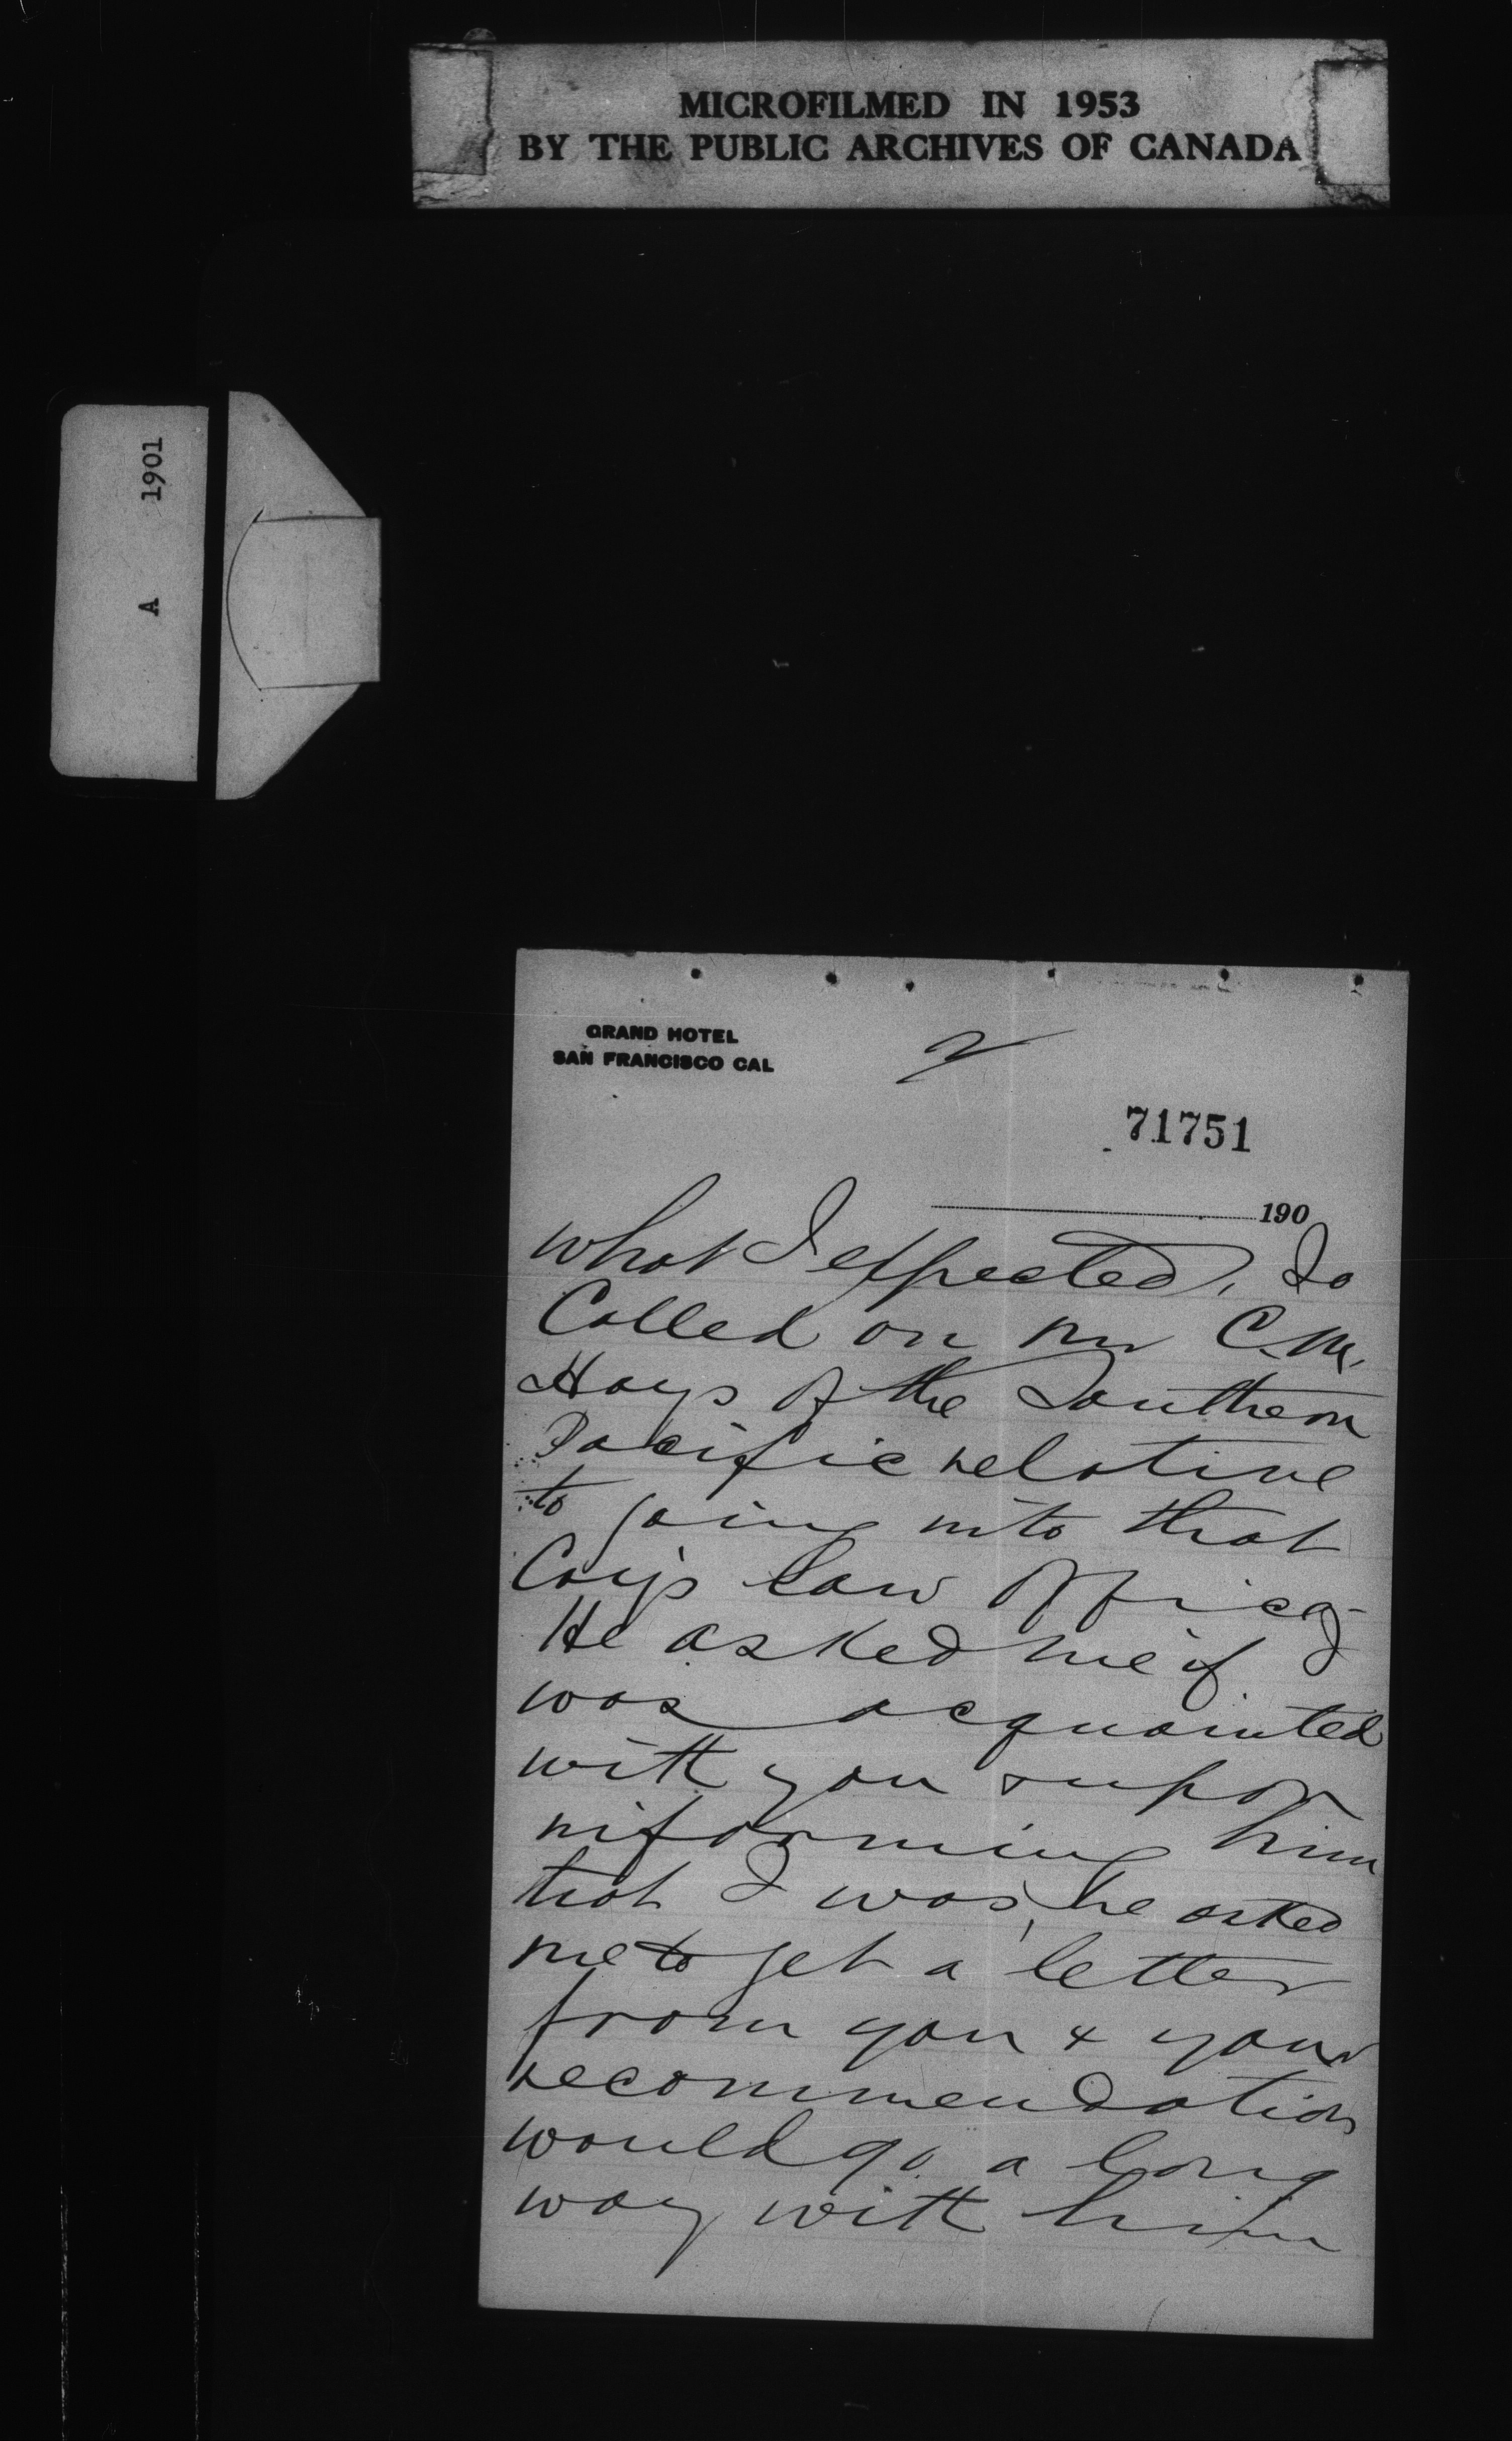 MICROFILMED IN 1953
BY THE PUBLIC ARCHIVES OF CANADA
A 1901
GRAND HOTEL
SAN FRANCISCO CAL
2
71751
190
what I expected, So
Called on Mr C. M.
Hays of the Southern
Pacific relative
to going into that
Coy's Law Office,
He asked me if I
was acquainted
with you & upon
informing him
that I was, he asked
me to get a letter
from you & your
recommendation
would go a long
way with him